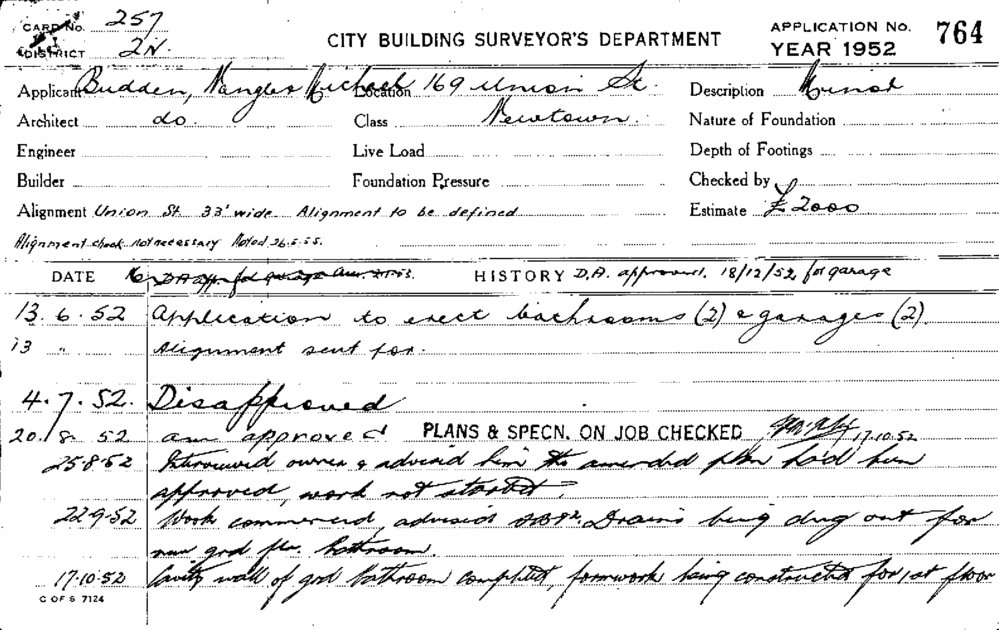 CARD No. 257
DISTRICT 2N.
CITY BUILDING SURVEYOR'S DEPARTMENT
APPLICATION No. 764
YEAR 1952
Applicant Budden, Michael Location 169 Union St. Description Minor
Architect do. Class Newtown. Nature of Foundation
Engineer Live Load Depth of Footings
Builder Foundation Pressure Checked by
Alignment Union St 33' wide Alignment to be defined Estimate £2000
Alignment check not necessary Noted 26.5.55.
DATE HISTORY D.A. approved. 18/12/52 for garage
13.6.52 Application to erect bathrooms (2) & garages (2).
13 " Alignment sent for.
4.7.52. Disapproved
20.8.52 am approved PLANS & SPECN. ON JOB CHECKED 17.10.52
25.8.52 Interviewed owner & advised him the amended plan had been
approved, work not started.
22.9.52 Work commenced, advised Drains being dug out for
new grd flr. bathroom.
17.10.52 Cavity wall of grd bathroom completed, formwork being constructed for 1st floor
C OF S 7124